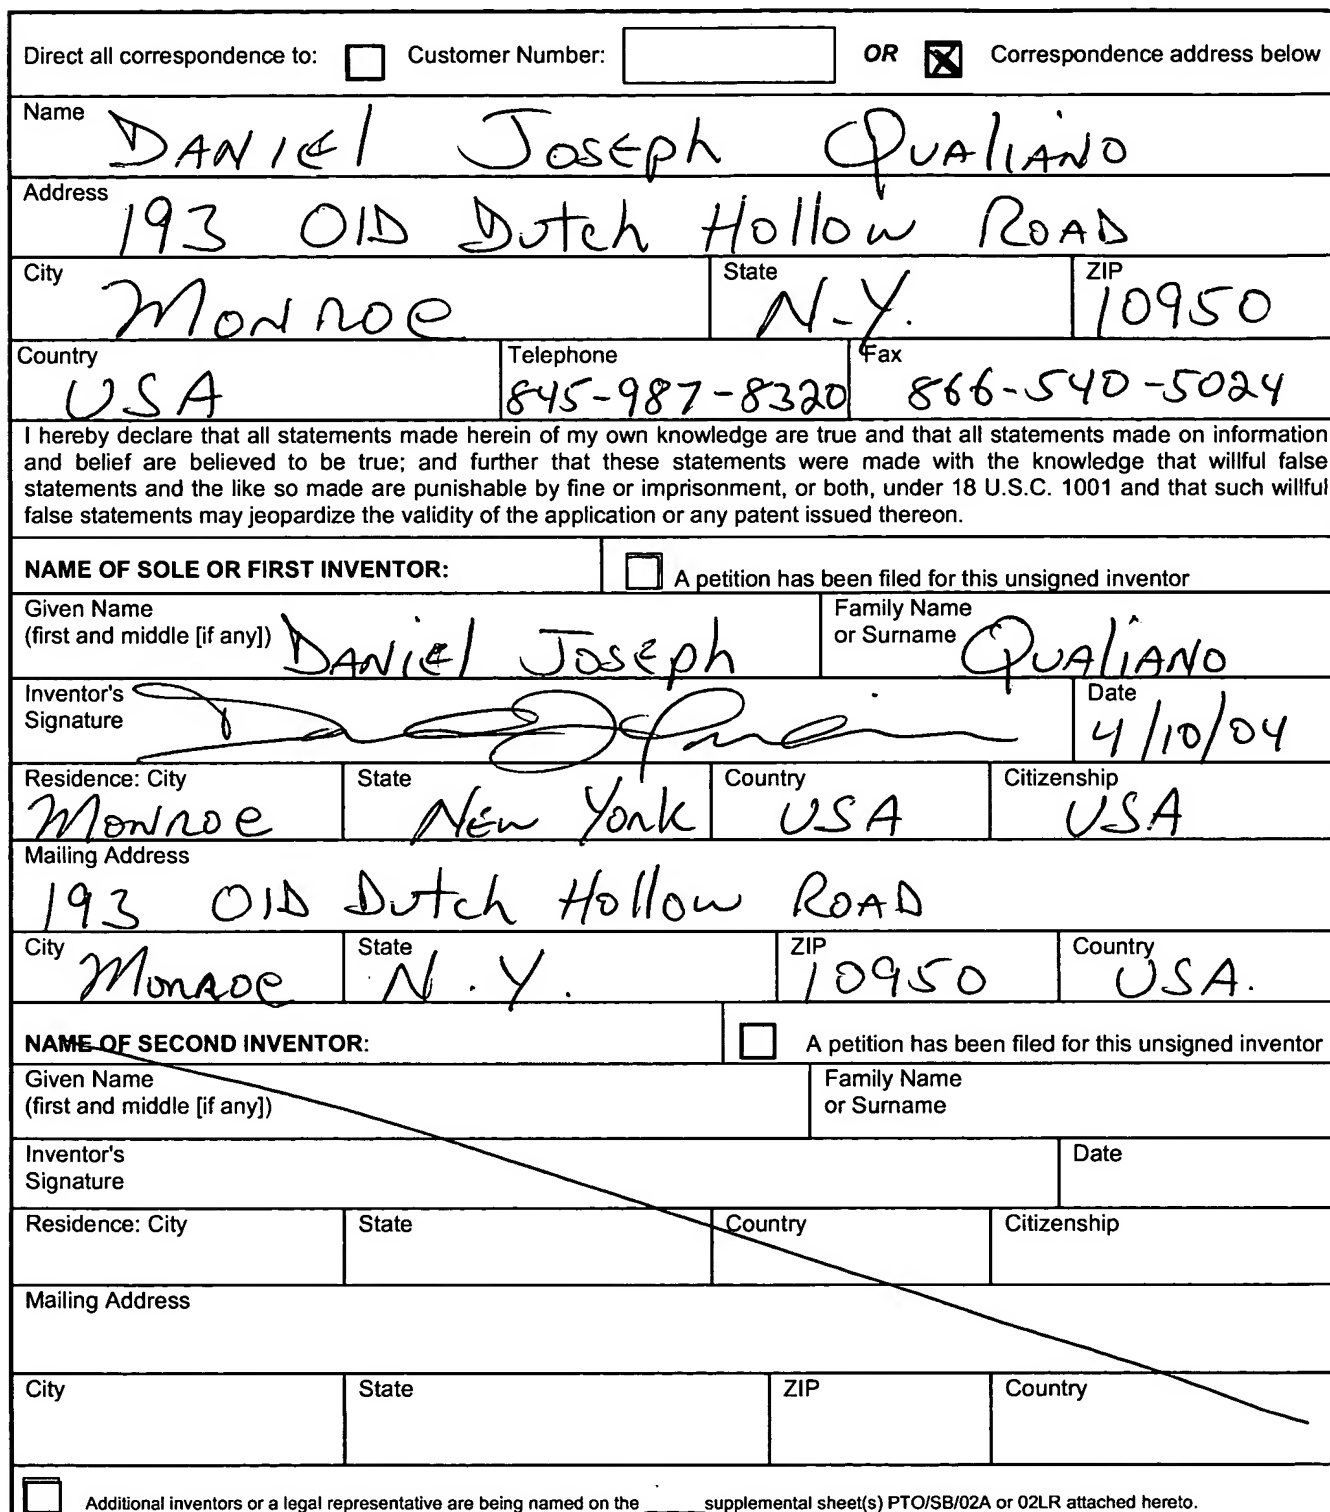 Direct all correspondence to: Customer Number: OR Correspondence address below
Name DANIEl JOSEPh QUAlIANO
Address 193 OlD Dutch Hollow ROAD
City Monroe State N-Y. ZIP 10950
Country USA Telephone 845-987-8320 Fax 866-540-5024
I hereby declare that all statements made herein of my own knowledge are true and that all statements made on information
and belief are believed to be true; and further that these statements were made with the knowledge that willful false
statements and the like so made are punishable by fine or imprisonment, or both, under 18 U.S.C. 1001 and that such willful
false statements may jeopardize the validity of the application or any patent issued thereon.
NAME OF SOLE OR FIRST INVENTOR: A petition has been filed for this unsigned inventor
Given Name Family Name
(first and middle [if any]) DANiEl JOSEPh or Surname QUAliANO
Inventor's Date
Signature 4/10/04
Residence: City State Country Citizenship
Monroe NEw York USA USA
Mailing Address
193 OlD Dutch Hollow ROAD
City Monroe State N.Y. ZIP 10950 Country USA.
NAME OF SECOND INVENTOR: A petition has been filed for this unsigned inventor
Given Name Family Name
(first and middle [if any]) or Surname
Inventor's Date
Signature
Residence: City State Country Citizenship
Mailing Address
City State ZIP Country
Additional inventors or a legal representative are being named on the ____ supplemental sheet(s) PTO/SB/02A or 02LR attached hereto.